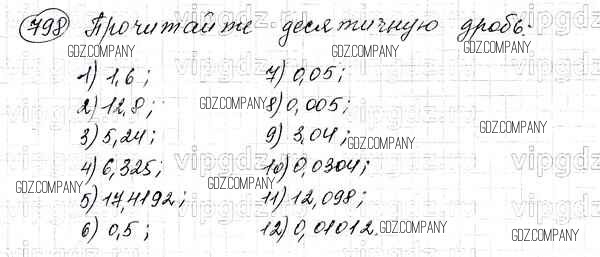 798 Прочитайте десятичную дробь:
1) 1,6; 7) 0,05;
2) 12,8; 8) 0,005;
3) 5,24; 9) 3,04;
4) 6,325; 10) 0,0304;
5) 17,4192; 11) 12,098;
6) 0,5; 12) 0,01012.
GDZ.COMPANY
GDZ.COMPANY
GDZ.COMPANY
GDZ.COMPANY
GDZ.COMPANY
GDZ.COMPANY
GDZ.COMPANY
GDZ.COMPANY
GDZ.COMPANY